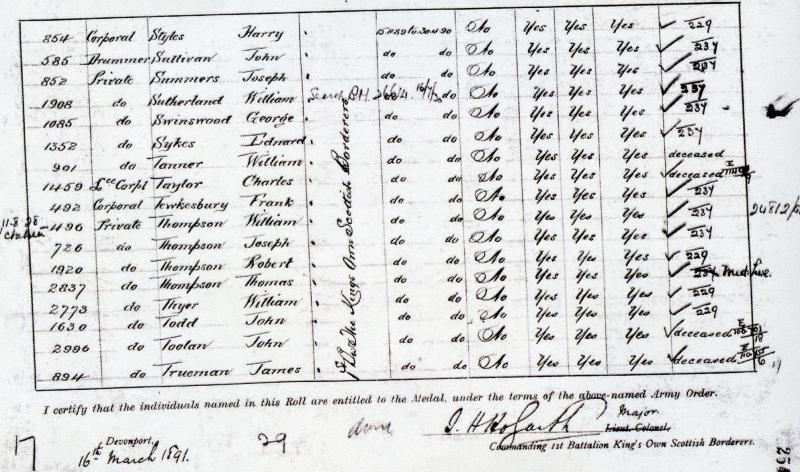 854 Corporal Styles Harry 15.11.89 to 30.4.90 No Yes Yes Yes ✓ 229
585 Drummer Sullivan John do do No Yes Yes Yes ✓ 237
852 Private Summers Joseph do do No Yes Yes Yes ✓ 237
1908 do Sutherland William do No Yes Yes Yes ✓ 237
1085 do Swinswood George do do No Yes Yes Yes ✓ 237
1352 do Sykes Edward do do No Yes Yes Yes ✓ 237
901 do Tanner William do do No Yes Yes Yes deceased
1459 Lce Corpl Taylor Charles do do No Yes Yes Yes ✓ deceased
492 Corporal Tewkesbury Frank do do No Yes Yes Yes ✓ 237
11.8.28 496 Private Thompson William do do No Yes Yes Yes ✓ 237
726 do Thompson Joseph do do No Yes Yes Yes ✓ 237
1920 do Thompson Robert do do No Yes Yes Yes ✓ 229
2837 do Thompson Thomas do do No Yes Yes Yes ✓ 237
2773 do Thyer William do do No Yes Yes Yes ✓ 229
1630 do Todd John do do No Yes Yes Yes ✓ 229
2996 do Toolan John do do No Yes Yes Yes ✓ deceased
894 do Trueman James do do No Yes Yes Yes ✓ deceased
The Kings Own Scottish Borderers
I certify that the individuals named in this Roll are entitled to the Medal, under the terms of the above-named Army Order.
17 Devonport, 29 done Major
16th March 1891. Lieut. Colonel,
Commanding 1st Battalion King's Own Scottish Borderers.